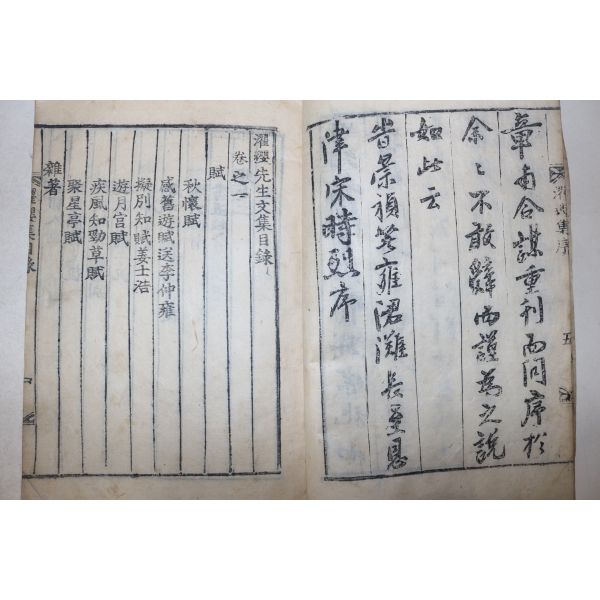 濯纓集序 五
章甫合謀重刊而問序於
余〻不敢辭而謹為之說
如此云
旹崇禎著雍涒灘長至恩
津宋時烈序
濯纓先生文集目錄
卷之一
賦
秋懷賦
感舊遊賦送李仲雍
擬別知賦姜士浩
遊月宮賦
疾風知勁草賦
聚星亭賦
雜著
濯纓集目錄